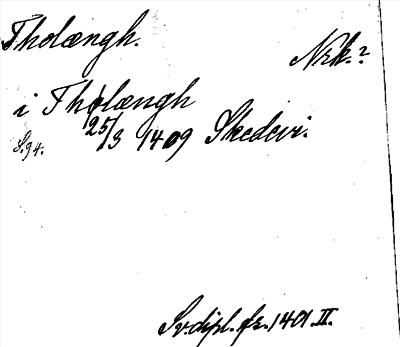 Tholængh.
Nrk.?
i Tholængh
S.94. 25/3 1409 Skedevi.
Sv.dipl. fr. 1401. II.